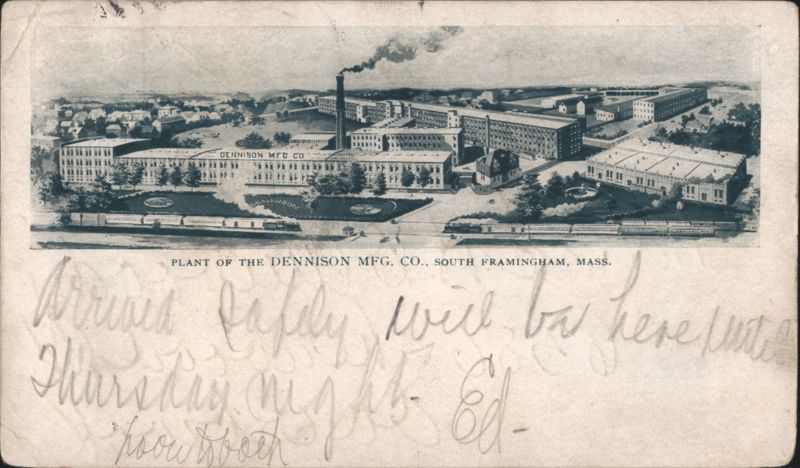 DENNISON MFG CO
PLANT OF THE DENNISON MFG. CO., SOUTH FRAMINGHAM, MASS.
Arrived safely will be here until
Thursday night. Ed-